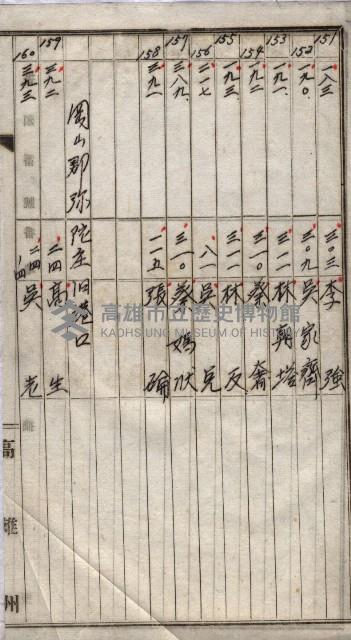 151 一八三 三〇三 李強
152 一九〇 三〇九 吳家齊
153 一九一 三一一 林興塔
154 一九二 三一〇 蔡奢
155 一九三 三一一 林反
156 二一七 八 吳兒
157 三八九 三一〇 蔡媽狀
158 三九一 一一五 張崙
岡山郡弥陀庄旧港口
159 三九二 二四 蔡生
160 三九三 二四ノ四 吳老
高雄州
高雄市立歷史博物館
KAOHSIUNG MUSEUM OF HISTORY